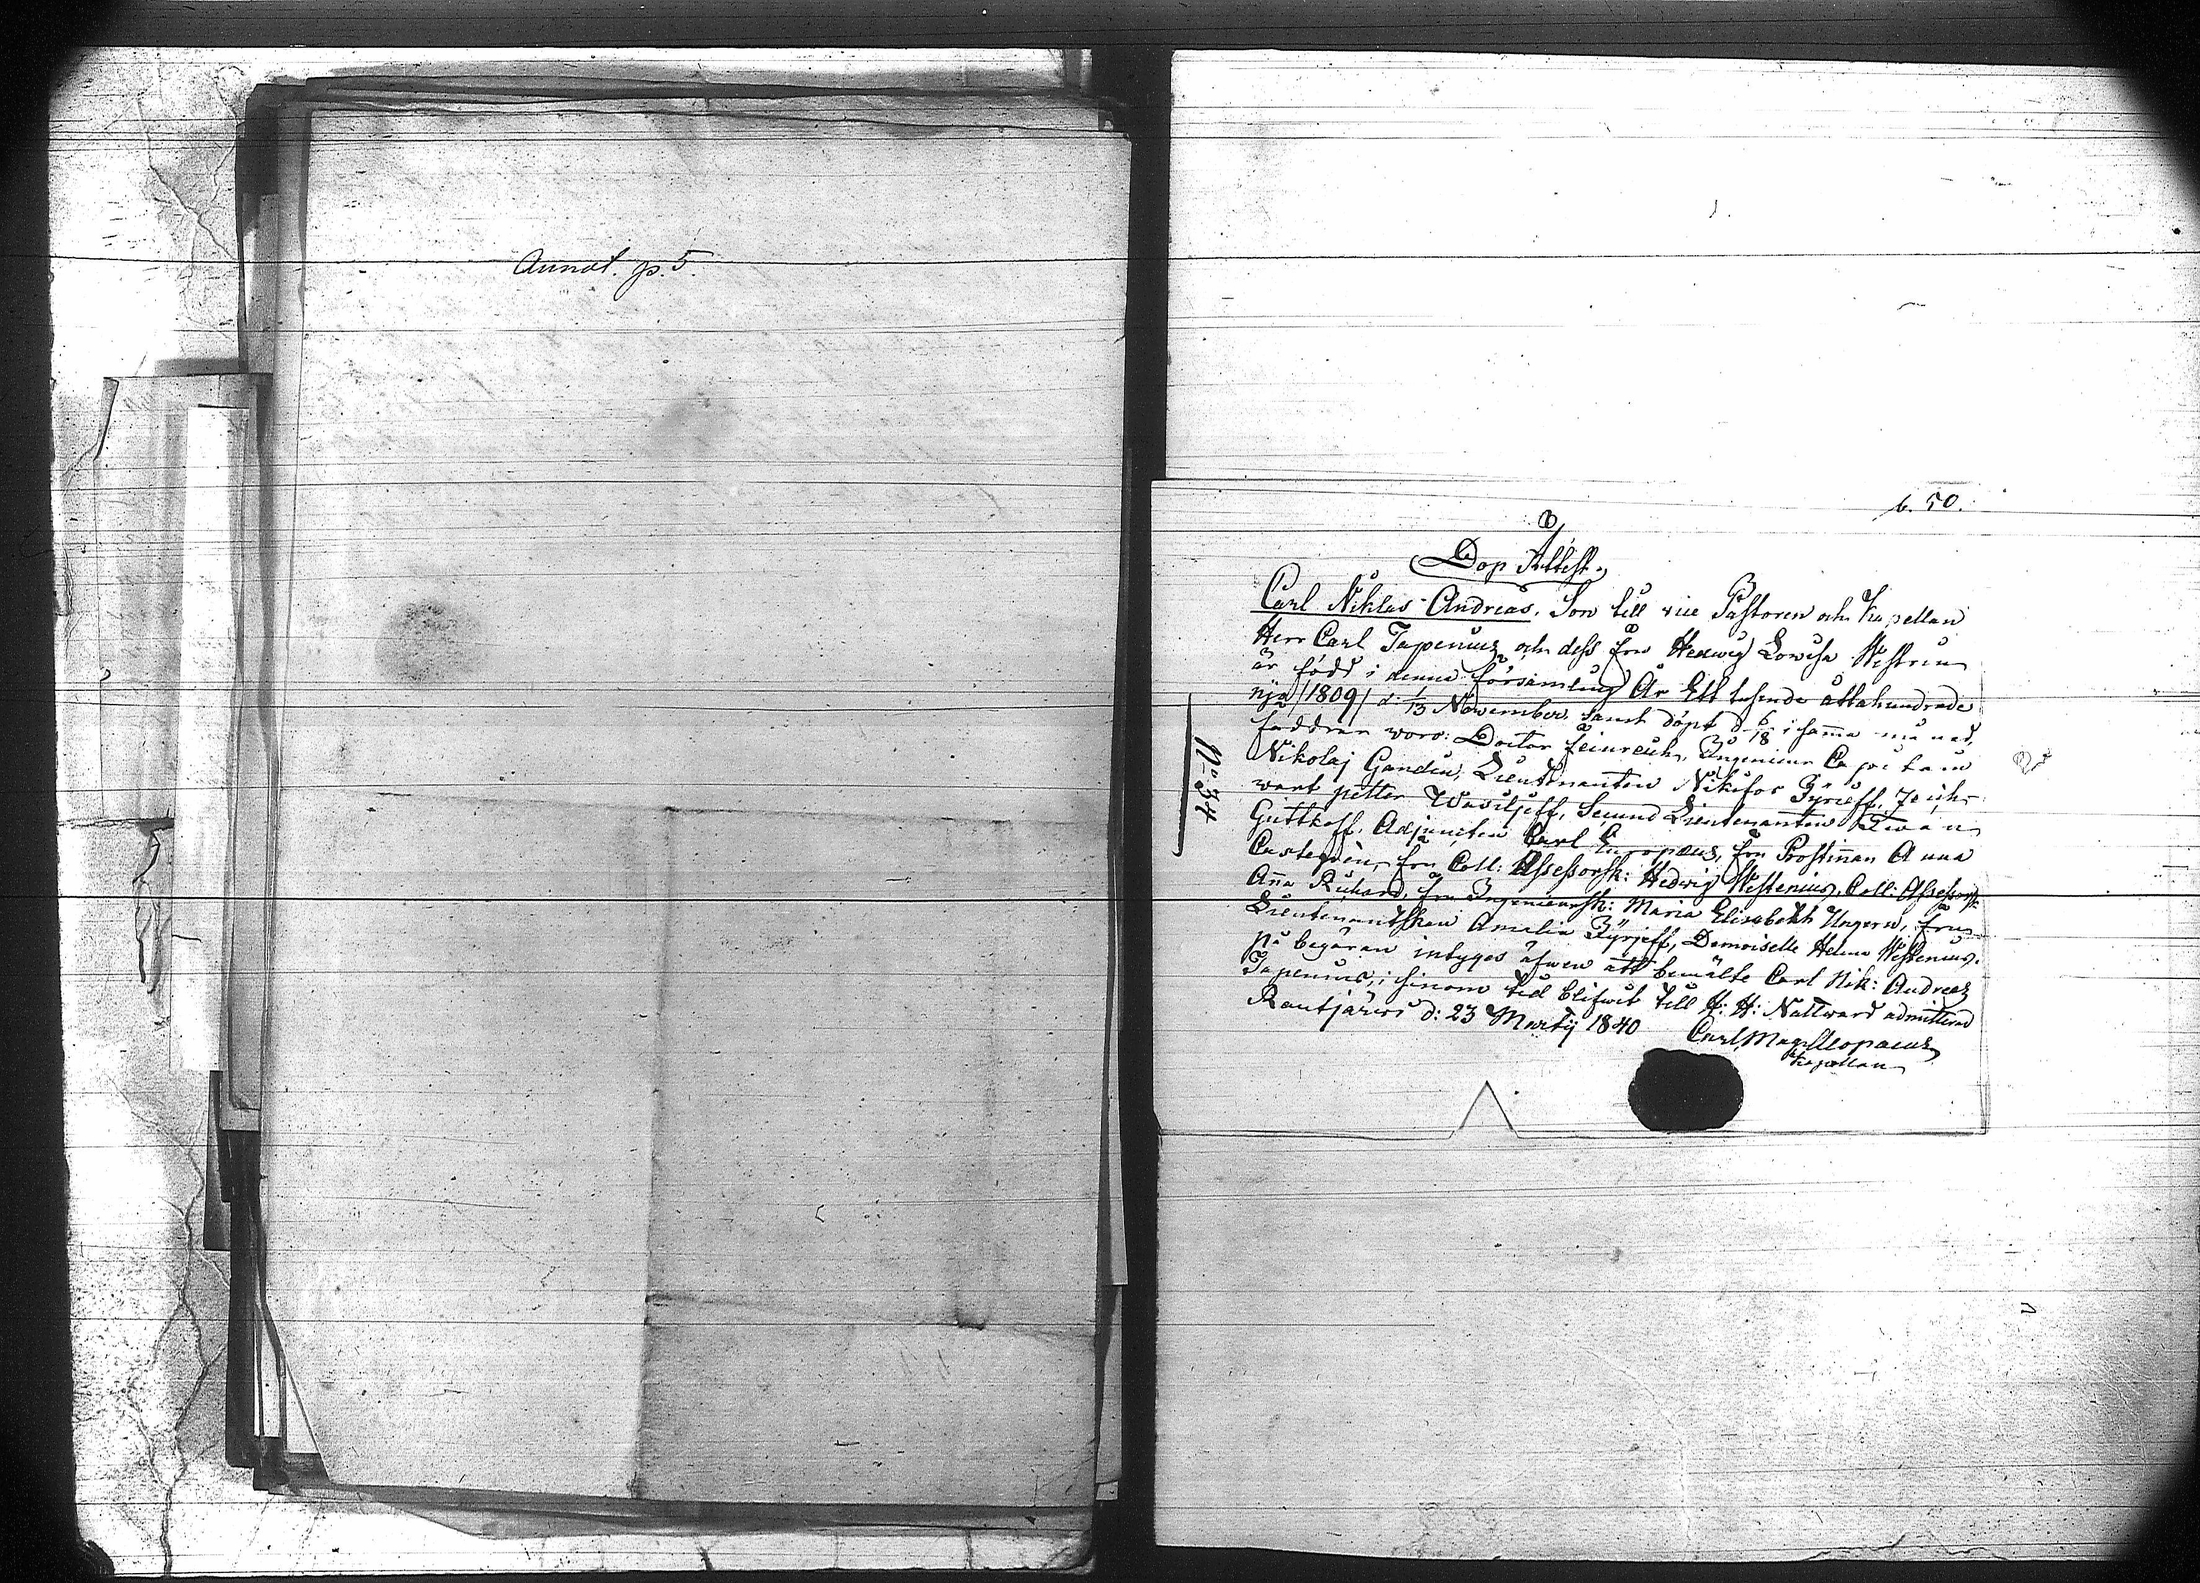 Annot. p. 5.
b. 50.
Dop Attest.
Carl Niklas Andreas, Son till vice Pastoren och Kapellan
Herr Carl Tapenius och dess fru Hedwig Lowisa Westren
är född i denna församling År Ett tusende åttahundrade
nijo /1809/ d: 1/13 November samt döpt d 6/18 i samma månad,
faddrar woro: Doctor Heinrich, Ingenieur Capitain
Nikolaj Gandin, Lieutnanten Nikifor Zyrjeff,
want petter Wasiljeff, Secund Lieutenanten Iwan
Guttkoff, Adjuncten Carl Europæus, fru Prostinnan Anna
Castegrén, fru Coll: Assessorsk: Hedwig Westenius, Coll: Assessorsk
Anna Richard, fru Ingenieursk: Maria Elisabeth Ungern, fru
Lieutenantskan Amalia Zyrjeff, Demoiselle Helena Westenius.
På begäran intygas äfwen att bemälte Carl Nik: Andreas
Tapenius, i sinom tid blifwit till H: H: Nattward admitterad
Rautjärwi d: 23 Martij 1840 Carl Mag: Alopaeus
Kapellan
No 34